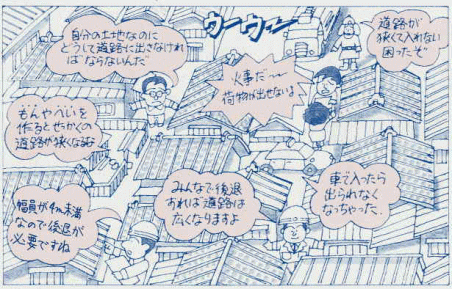 自分の土地なのに
どうして道路に出さなければ
ばならないんだ
ウーウー
道路が
狭くて入れない
困ったぞ
火事だ〜
荷物が出せないよ
もんやへいを
作るとせっかくの
道路が狭くなる
幅員が4m未満
なので後退が
必要ですね
みんなで後退
すれば道路は
広くなりますよ
車で入ったら
出られなく
なっちゃった.